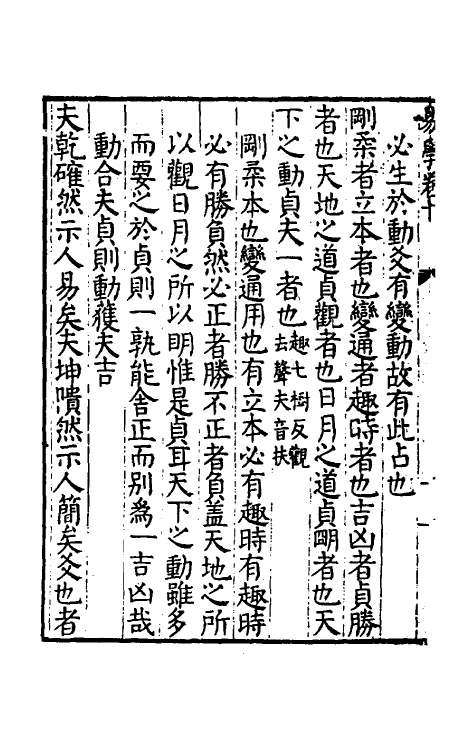 易學卷十
必生於動爻有變動故有此占也
剛柔者立本者也變通者趣時者也吉凶者貞勝
者也天地之道貞觀者也日月之道貞明者也天
下之動貞夫一者也趣七樹反觀去聲夫音扶
剛柔本也變通用也有立本必有趣時有趣時
必有勝負然必正者勝不正者負蓋天地之所
以觀日月之所以明惟是貞耳天下之動雖多
而要之於貞則一孰能舍正而別爲一吉凶哉
動合夫貞則動獲夫吉
夫乾確然示人易矣夫坤隤然示人簡矣爻也者